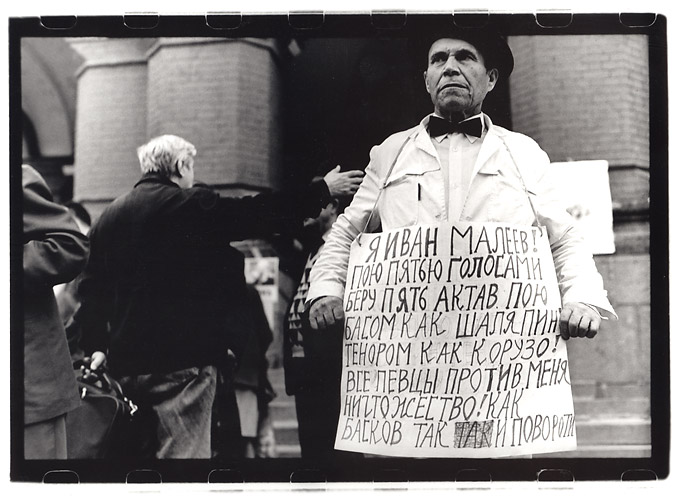 Я ИВАН МАЛЕЕВ!
ПОЮ ПЯТЬЮ ГОЛОСАМИ
БЕРУ ПЯТЬ АКТАВ. ПОЮ
БАСОМ КАК ШАЛЯПИН
ТЕНОРОМ КАК КОРУЗО!
ВСЕ ПЕВЦЫ ПРОТИВ МЕНЯ
НИЧТОЖЕСТВО! КАК
БАСКОВ ТАК И ПОВОРОТИ